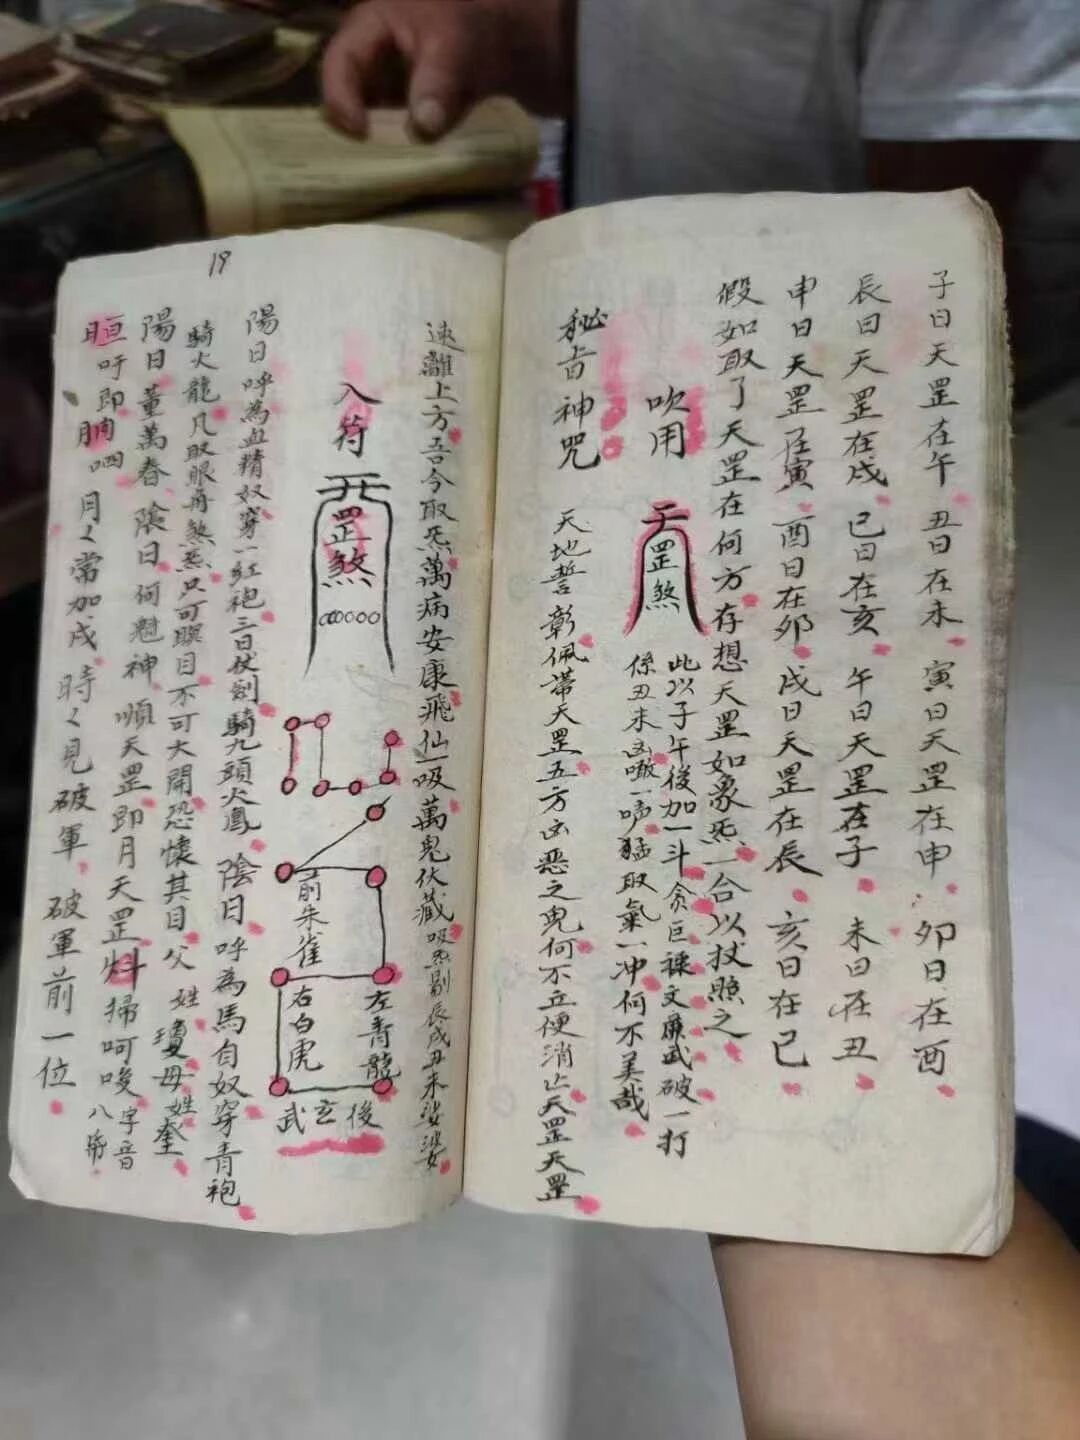 子日天罡在午 丑日在未 寅日天罡在申 卯日在酉
辰日天罡在戌 巳日在亥 午日天罡在子 未日在丑
申日天罡在寅 酉日在卯 戌日天罡在辰 亥日在巳
假如取了天罡在何方存想天罡如象炁一合以扙照之
吹用
罡煞
此以子午後加一斗贪巨祿文廉武破一打
係丑未凶噉一啼猛取氣一冲何不美哉
秘音神咒
天地誓彰佩帶天罡五方凶恶之鬼何不立便消亡天罡天罡
速離上方吾今取炁萬病安康飛仙一吸萬鬼伏藏吸炁剔辰戌丑未娑婆
入符
罡煞
前朱雀
右白虎
左青龍
武玄後
陽日呼為血精奴穿一紅袍三日仗劍騎九頭火鳳 陰日呼為馬自奴穿青袍
騎火龍凡取眼再煞炁只可瞑目不可大開恐懷其目父姓瓊母姓奎
陽日董萬春 陰日何魁神 順天罡即月天罡斜掃呵唆八字音
吁即呬 月々常加戌時々見破軍 破軍前一位
19